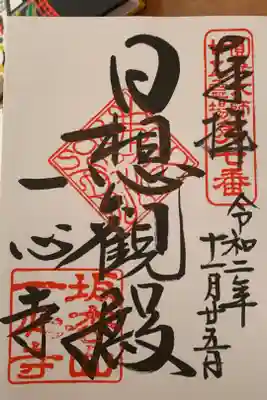 奉拝
令和二年
十一月廿五日
日想觀殿
一心寺
坂松山
一心寺